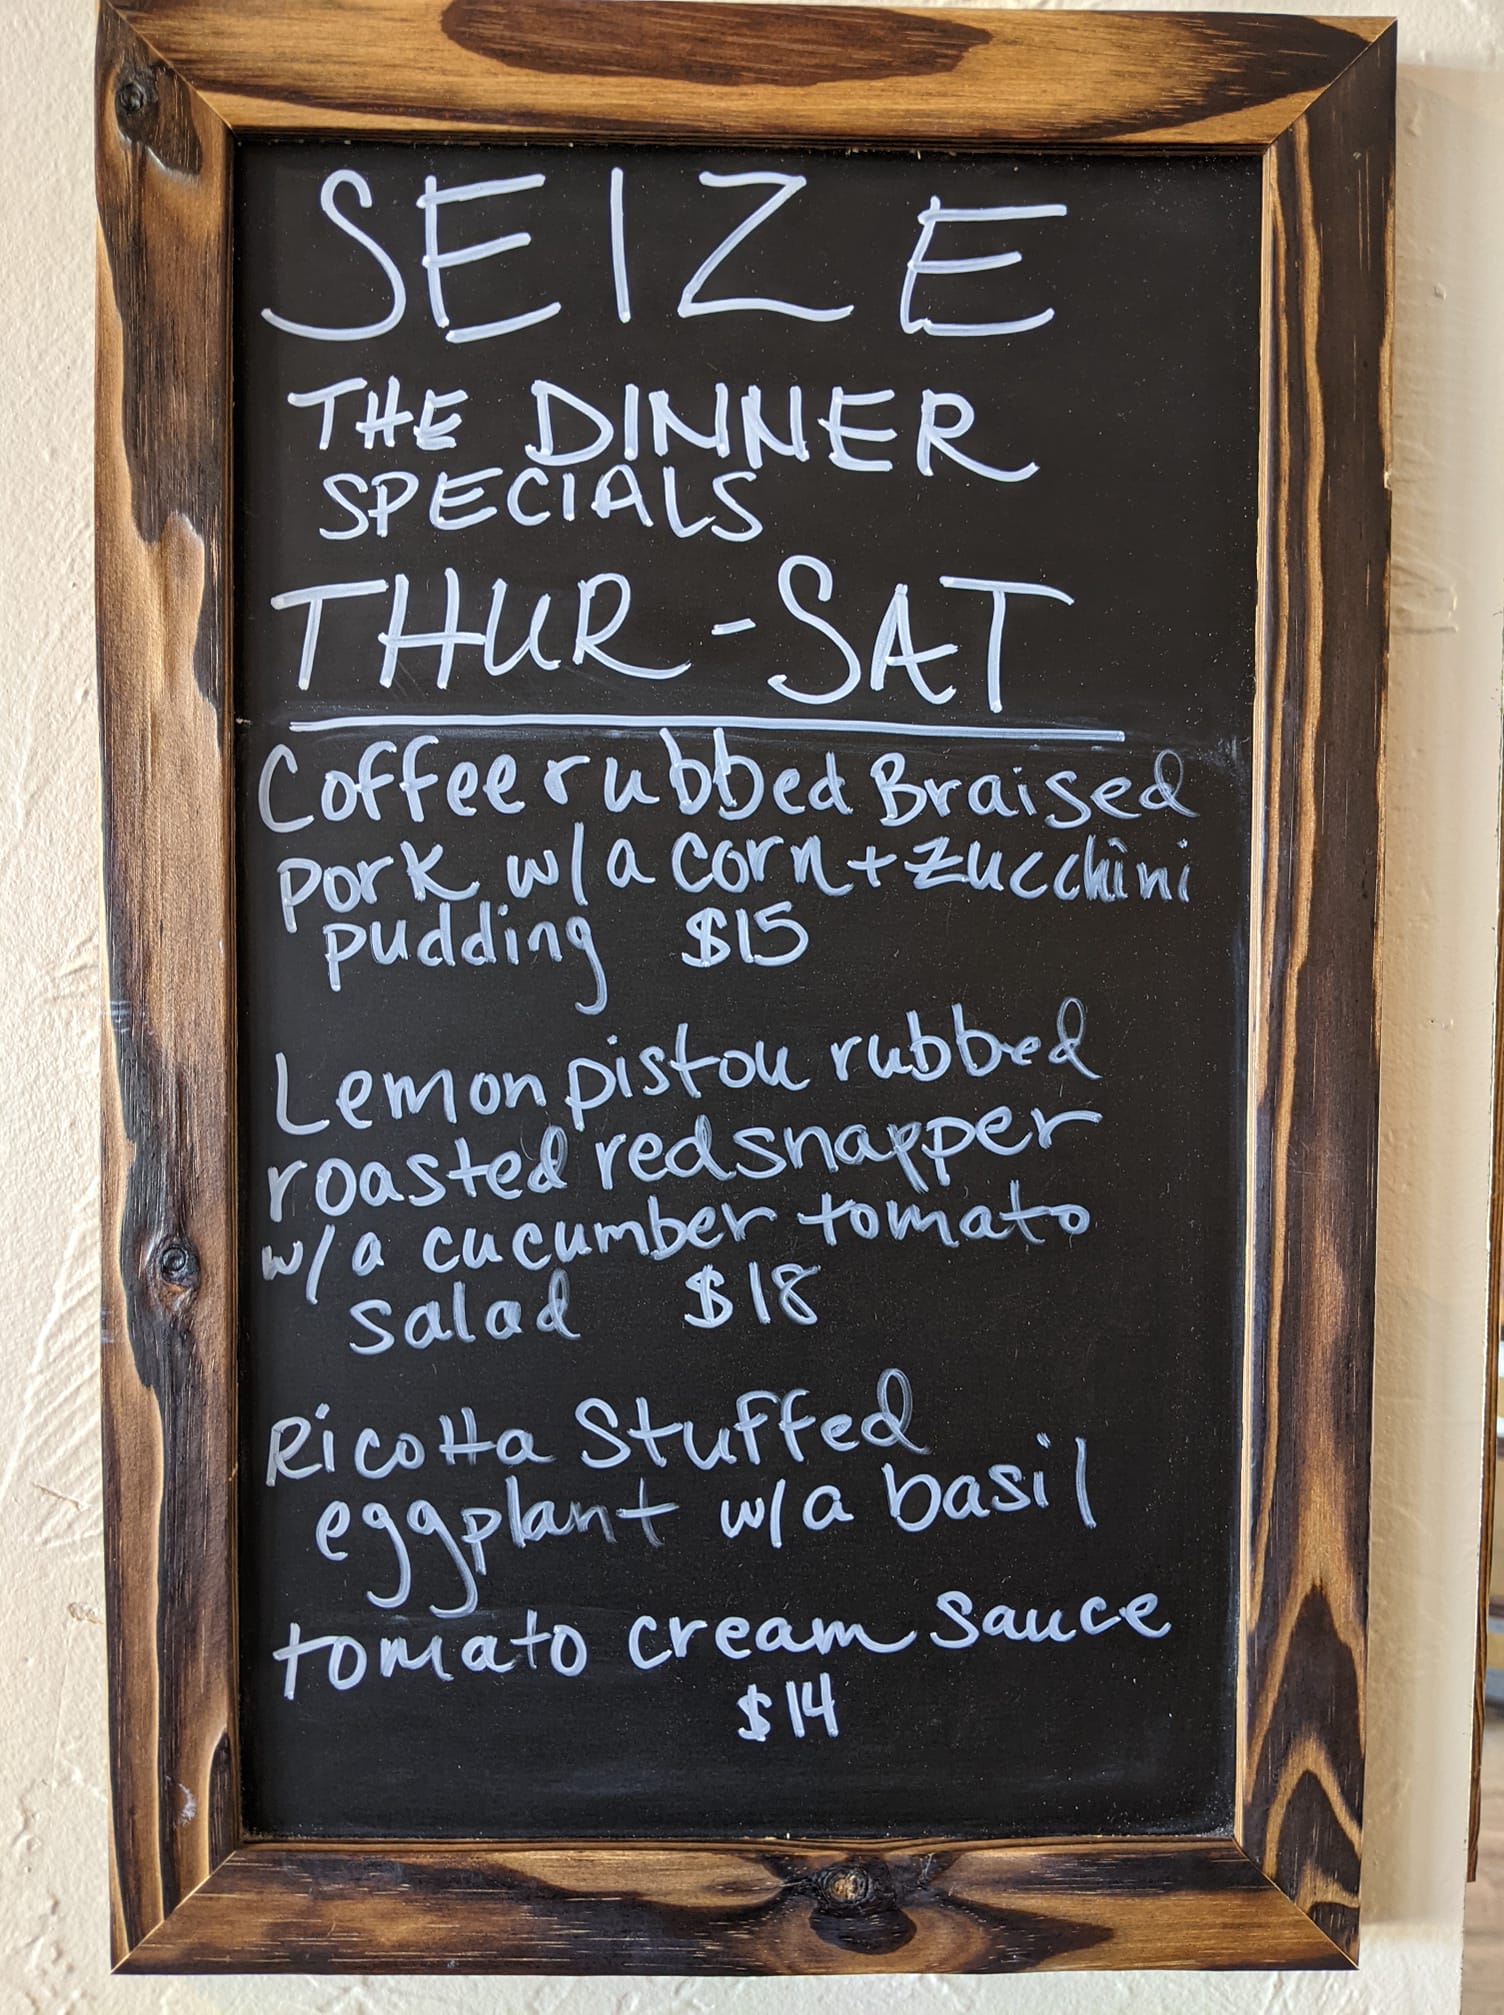 SEIZE
THE DINNER
SPECIALS
THUR - SAT
Coffee rubbed Braised
pork w/a corn + zucchini
pudding $15
Lemon pistou rubbed
roasted red snapper
w/a cucumber tomato
salad $18
Ricotta Stuffed
eggplant w/a basil
tomato cream sauce
$14